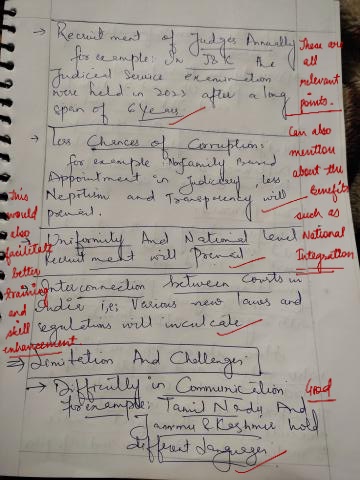 → Recruitment of Judges Annually
for example: In J&K the
Judicial Service examination
were held in 2023 after a long
span of 6 Years
These are
all
relevant
points.
→ Less Chances of Corruption:
for example Nofamily Based
Appointment in Judiciary, less
Nepotism and Transparency will
prevail.
Can also
mention
about the
Benefits
such as
National
Integration
→ Uniformity And National level
Recruitment will Prevail
→ Interconnection between Courts in
India i.e; Various new Laws and
regulations will inculcate
This
would
also
facilitate
better
training
and
skill
enhancement
⇒ Limitation And Challenges
→ Difficulty in Communication
for example: Tamil Nadu And
Jammu & Kashmir hold
different Languages
Good